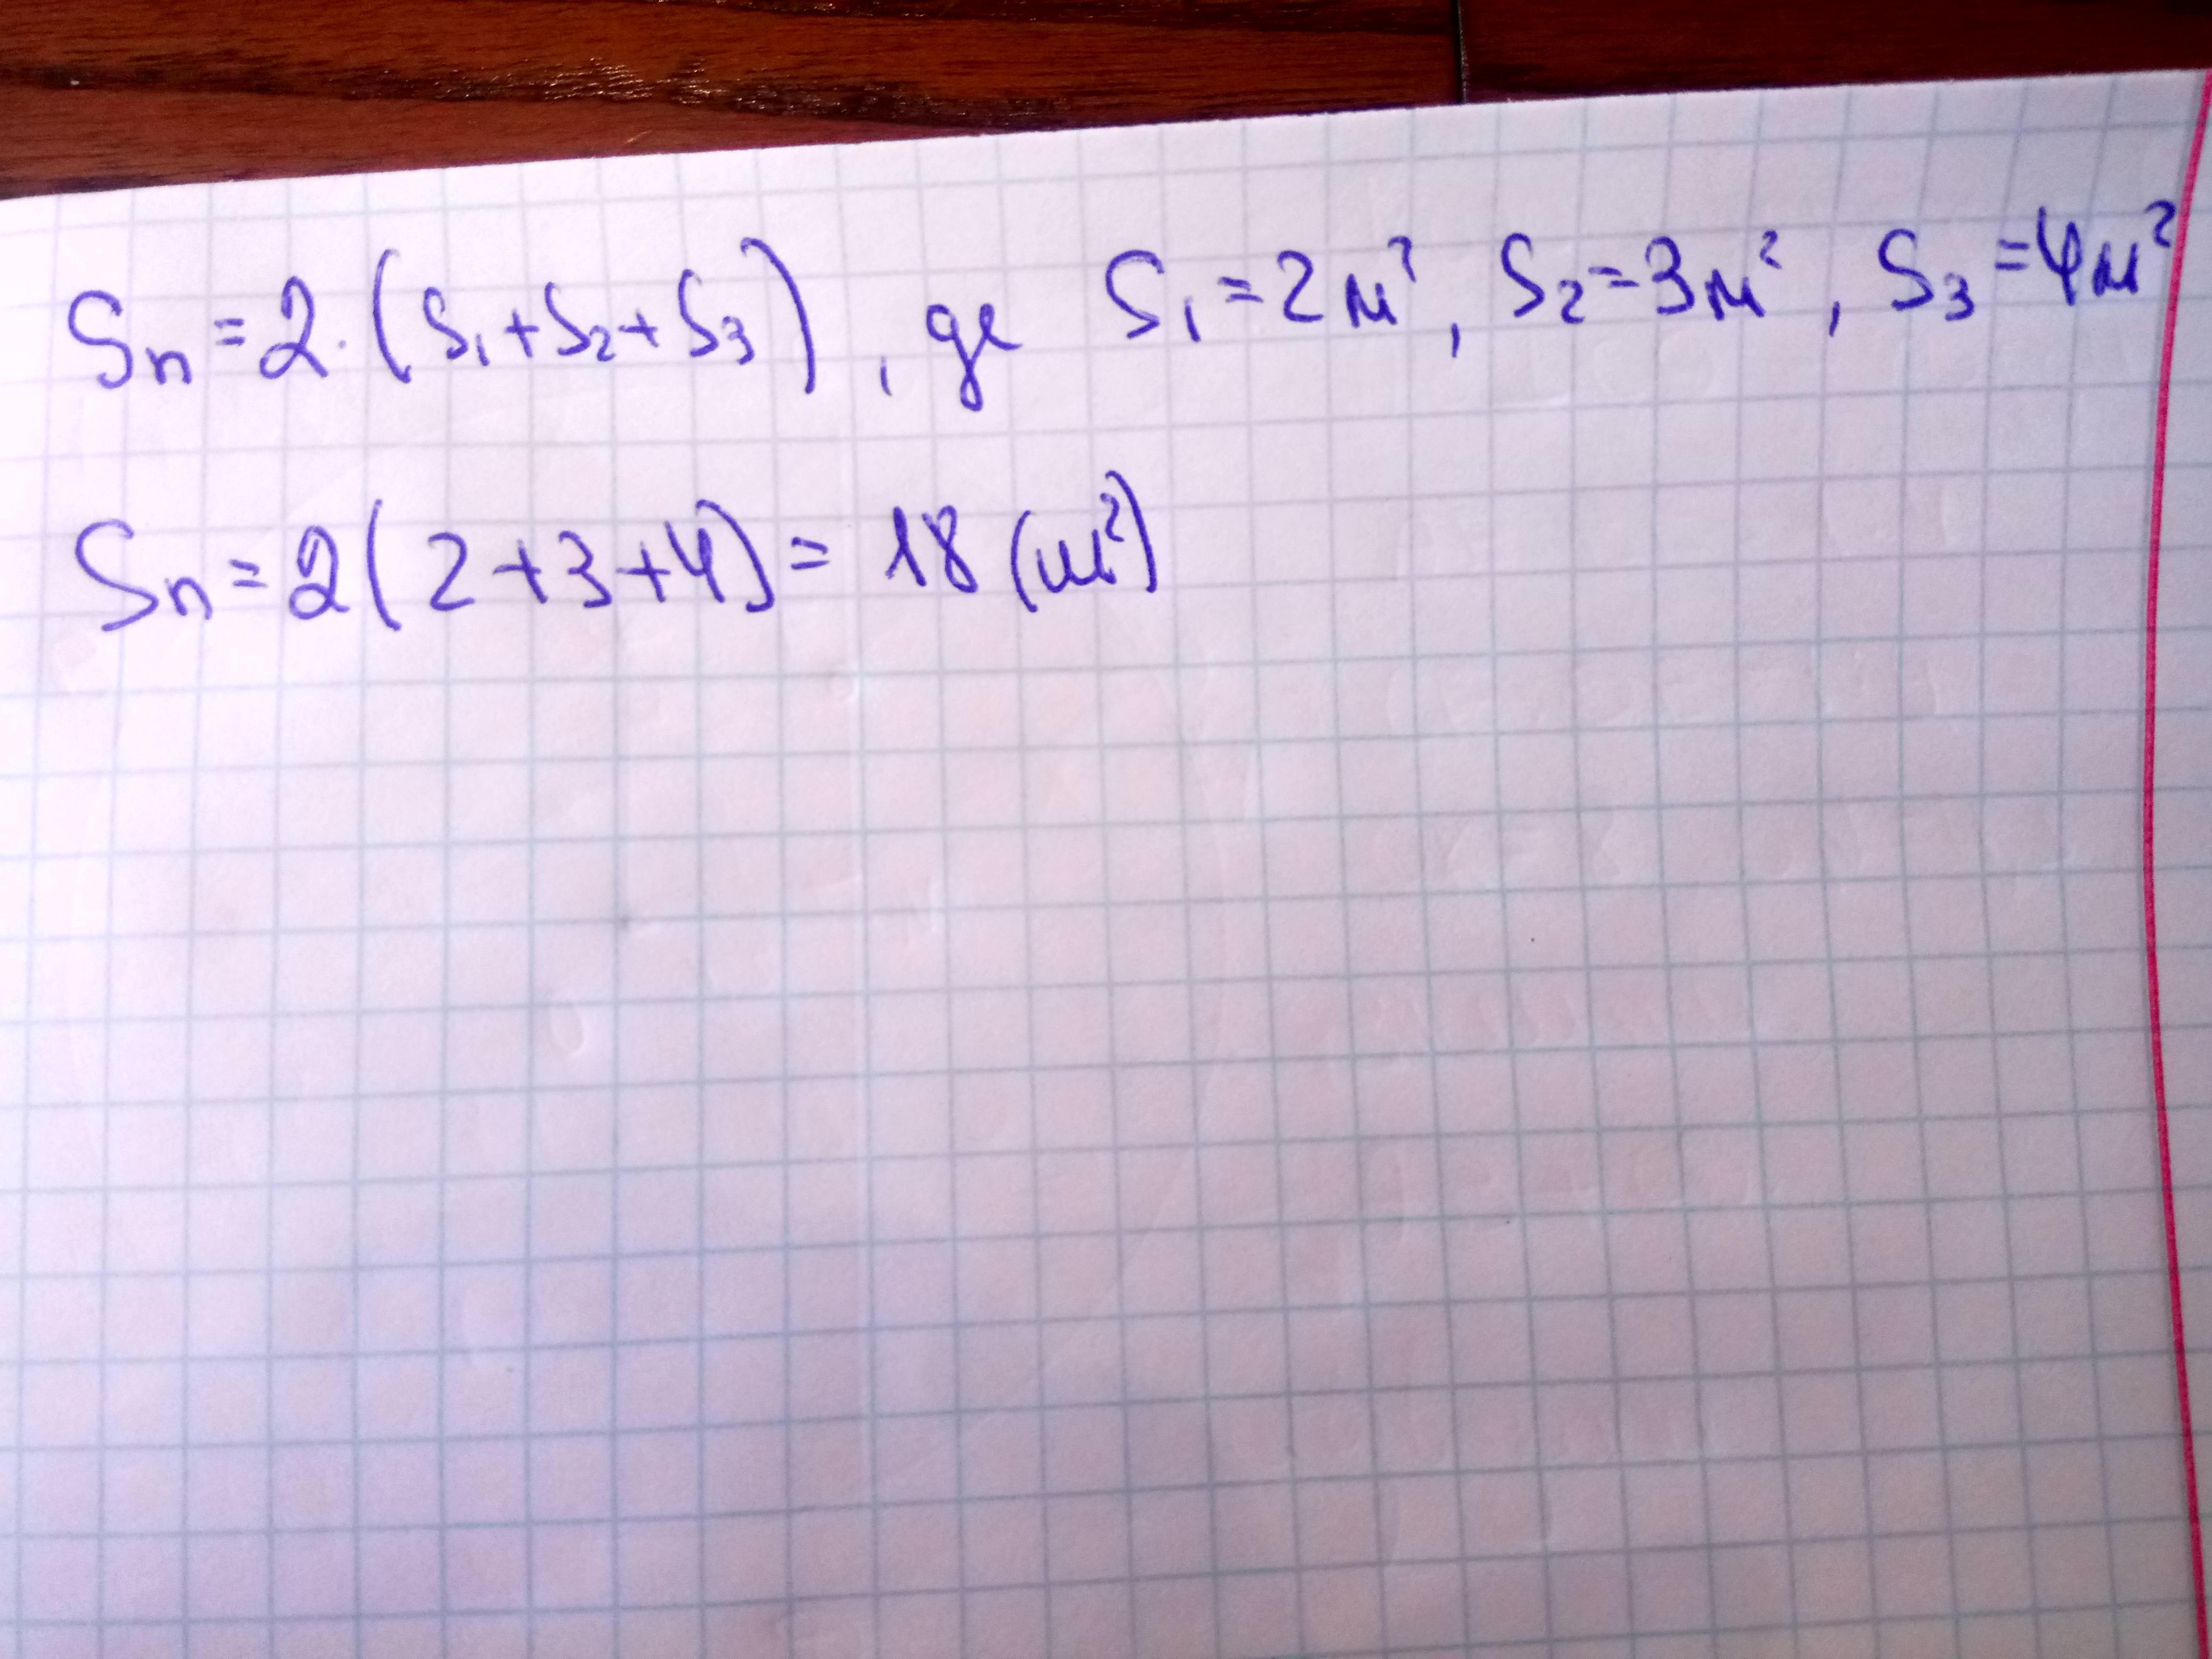 Sп=2·(S₁+S₂+S₃), де S₁=2м², S₂=3м², S₃=4м²
Sп=2(2+3+4)=18(м²)